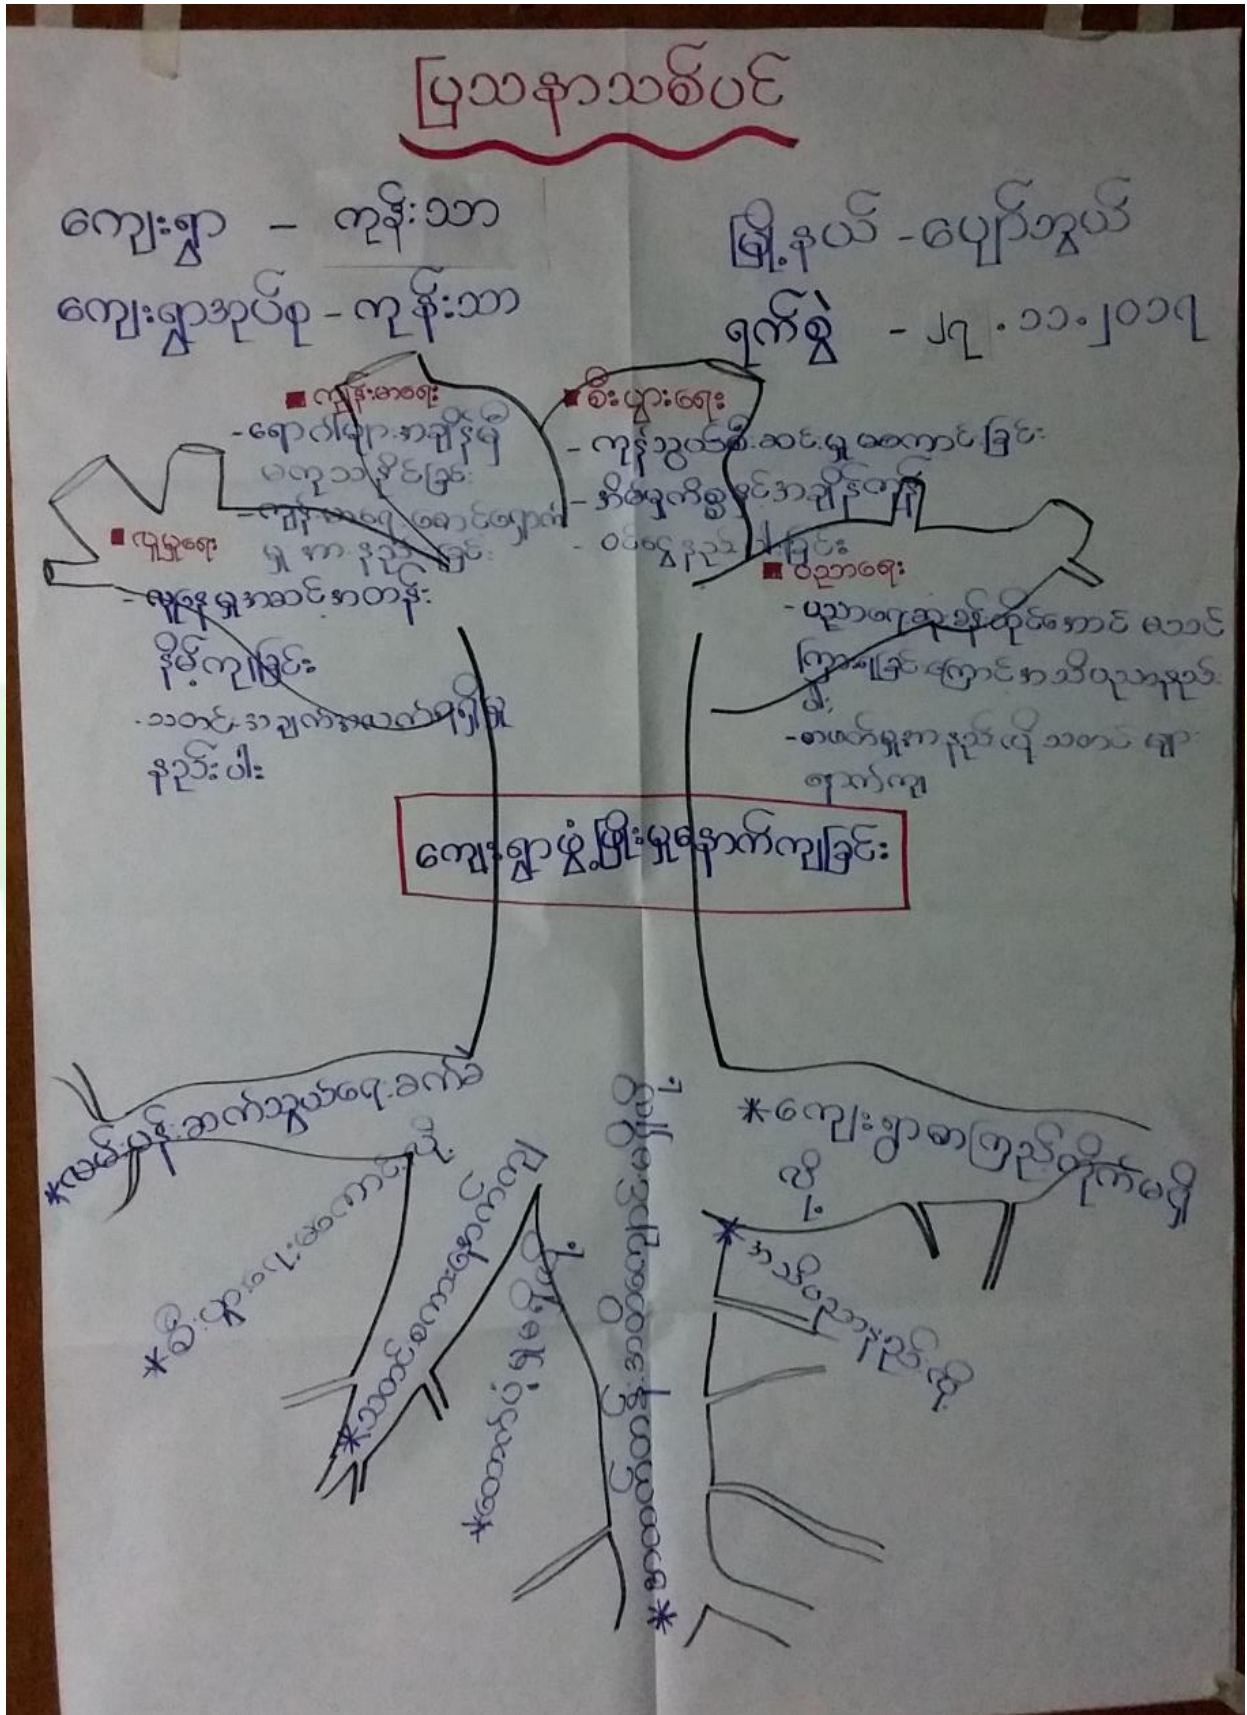 ပြဿနာသစ်ပင်
ကျေးရွာ - ကုန်းသာ
မြို့နယ် - ပျော်ဘွယ်
ကျေးရွာအုပ်စု - ကုန်းသာ
ရက်စွဲ - ၂၇.၁၁.၂၀၁၇
ကျန်းမာရေး
- ရောဂါများအချိန်မှီ
မကုသနိုင်ခြင်း
- ကျန်းမာရေးစောင့်ရှောက်
မှုအားနည်းခြင်း
စီးပွားရေး
- ကုန်သွယ်စီးဆင်းမှုမကောင်းခြင်း
- အိမ်မှုကိစ္စနှင့်အချိန်ကုန်
- ဝင်ငွေနည်းပါးခြင်း
လူမှုရေး
- လူနေမှုအဆင့်အတန်း
နိမ့်ကျခြင်း
- သတင်းအချက်အလက်ရရှိမှု
နည်းပါး
ပညာရေး
- ပညာရေးဆုံးခန်းတိုင်အောင် မသင်
ကြားရခြင်းကြောင့်အသိပညာနည်း
ပါး
- စာဖတ်မှုအားနည်းလို့ သတင်းများ
နောက်ကျ
ကျေးရွာဖွံ့ဖြိုးမှုနောက်ကျခြင်း
*လမ်းပန်းဆက်သွယ်ရေးခက်ခဲ
*စီးပွားရေးမကောင်းလို့
*သတင်းစကားနောက်ကျ
*ကျေးရွာစာကြည့်တိုက်မရှိ
လို့
*အသိပညာနည်းလို့